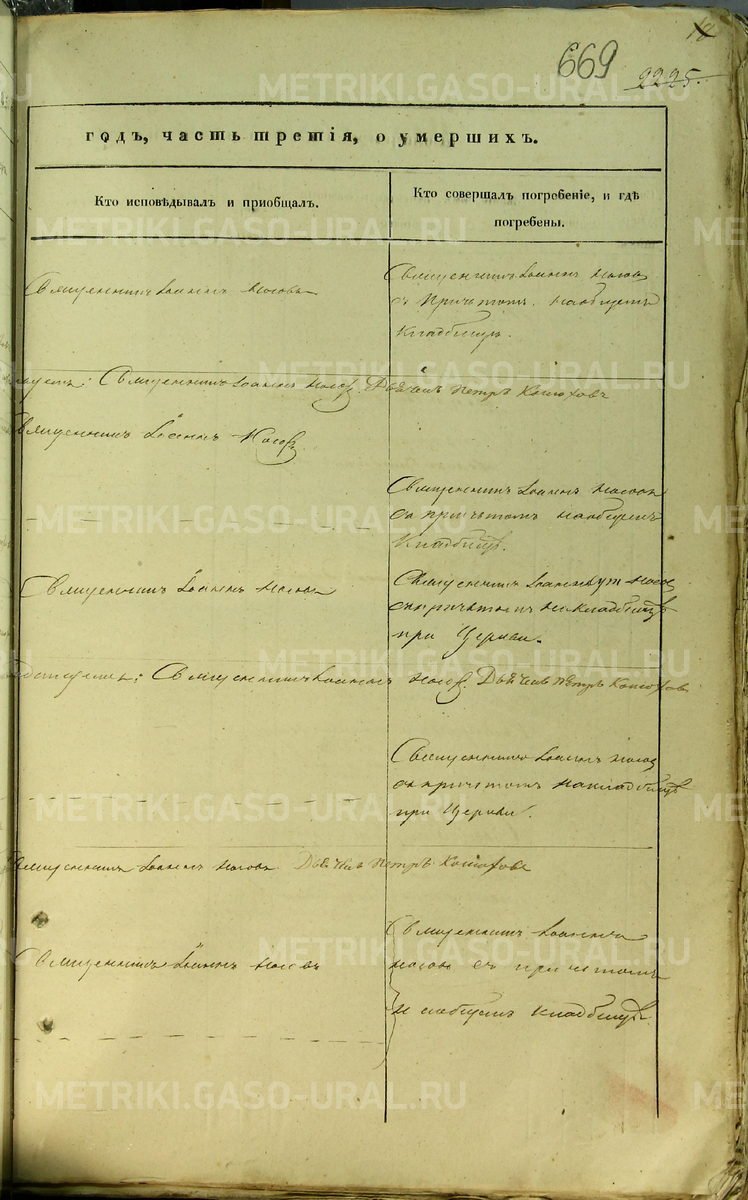 669
2225.
METRIKI.GASO-URAL.RU
годъ, часть третія, о умершихъ.
Кто исповѣдывалъ и приобщалъ.
Кто совершалъ погребеніе, и гдѣ
погребены.
Священникъ Іоаннъ Носовъ
Священникъ Іоаннъ Носовъ
съ причтомъ на общемъ
кладбищѣ.
Священникъ Іоаннъ Носовъ. Дьячекъ Петръ Конюховъ
Священникъ Іоаннъ Носовъ
Священникъ Іоаннъ Носовъ
съ причтомъ на общемъ
кладбищѣ.
Священникъ Іоаннъ Носовъ
Священникъ Іоаннъ Носовъ
съ причтомъ на кладбищѣ
при Церкви.
Священникъ Іоаннъ Носовъ. Дьячекъ Петръ Конюховъ
Священникъ Іоаннъ Носовъ
съ причтомъ на кладбищѣ
при Церкви.
Священникъ Іоаннъ Носовъ Дьячекъ Петръ Конюховъ
Священникъ Іоаннъ Носовъ
Священникъ Іоаннъ
Носовъ съ причтомъ
на общемъ кладбищѣ